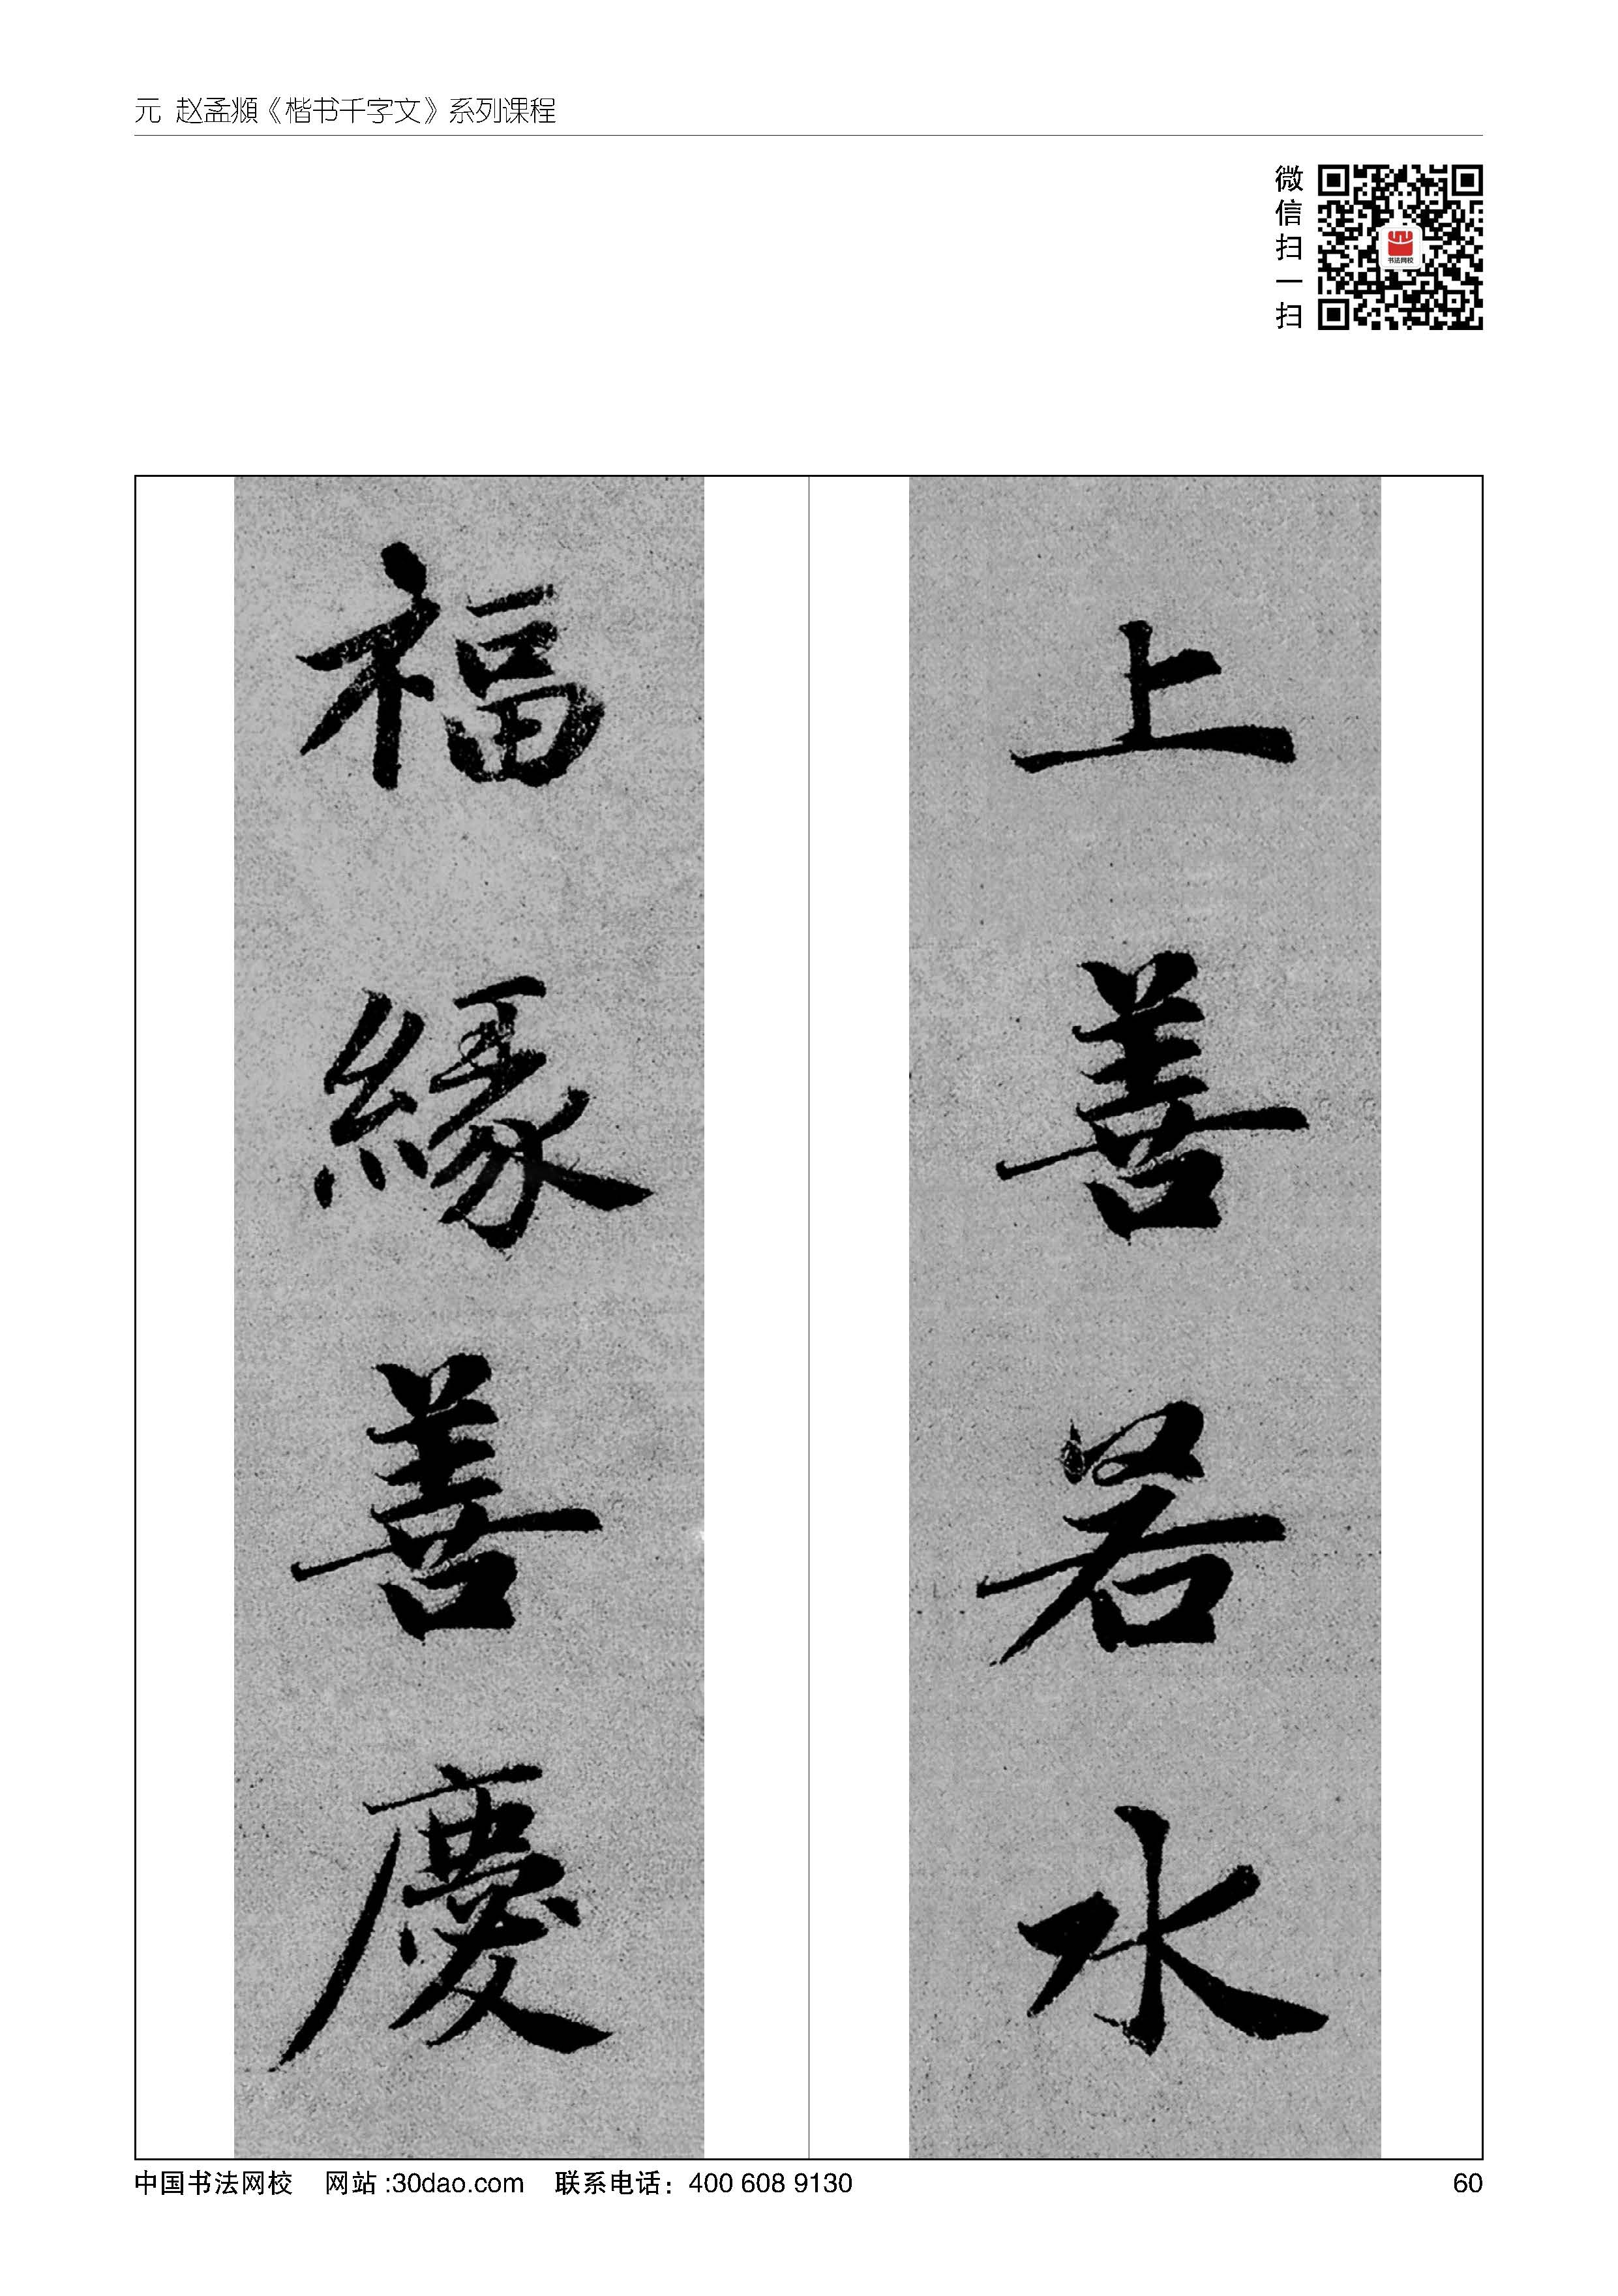 元 赵孟頫《楷书千字文》系列课程
微信扫一扫
书法网校
上善若水
福緣善慶
中国书法网校 网站:30dao.com 联系电话：400 608 9130
60